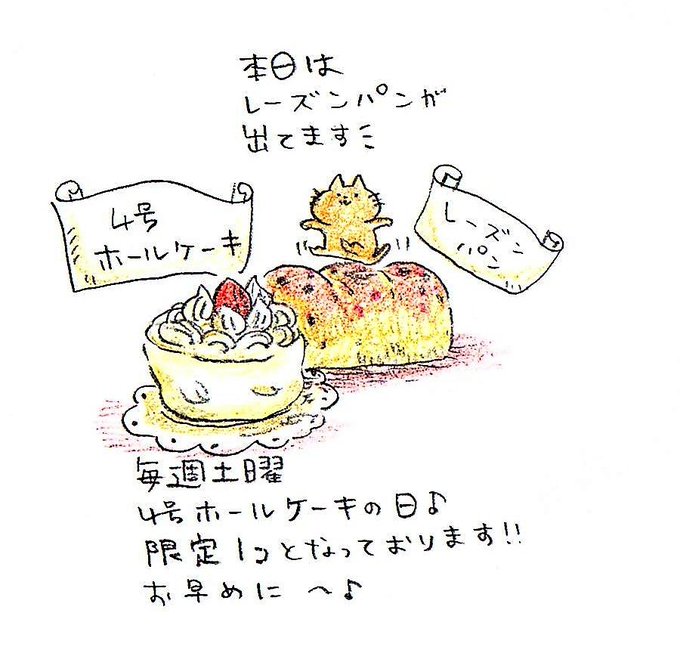 本日は
レーズンパンが
出てます
4号
ホールケーキ
レーズン
パン
毎週土曜
4号ホールケーキの日♪
限定1コとなっております!!
お早めに〜♪